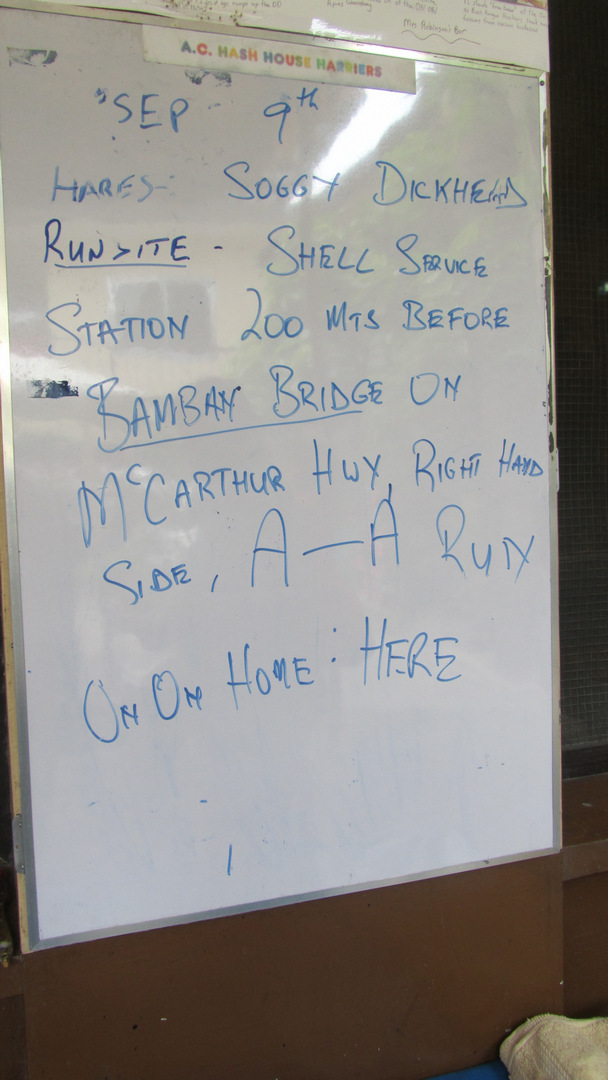 A.C. HASH HOUSE HARRIERS
SEP - 9th
HARES - SOGGY DICKHEAD
RUNSITE - SHELL SERVICE
STATION 200 MTS BEFORE
BAMBAN BRIDGE ON
McCARTHUR HWY, RIGHT HAND
SIDE, A—A RUN
ON ON HOME : HERE